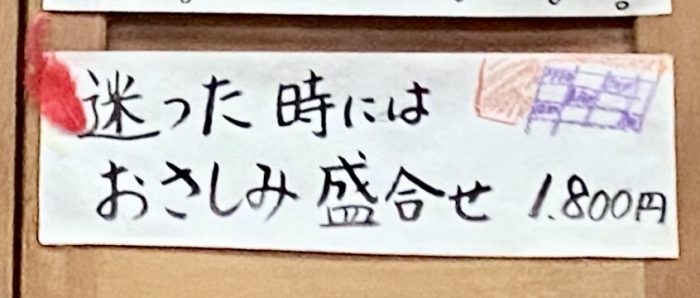 迷った時には
おさしみ盛合せ 1.800円